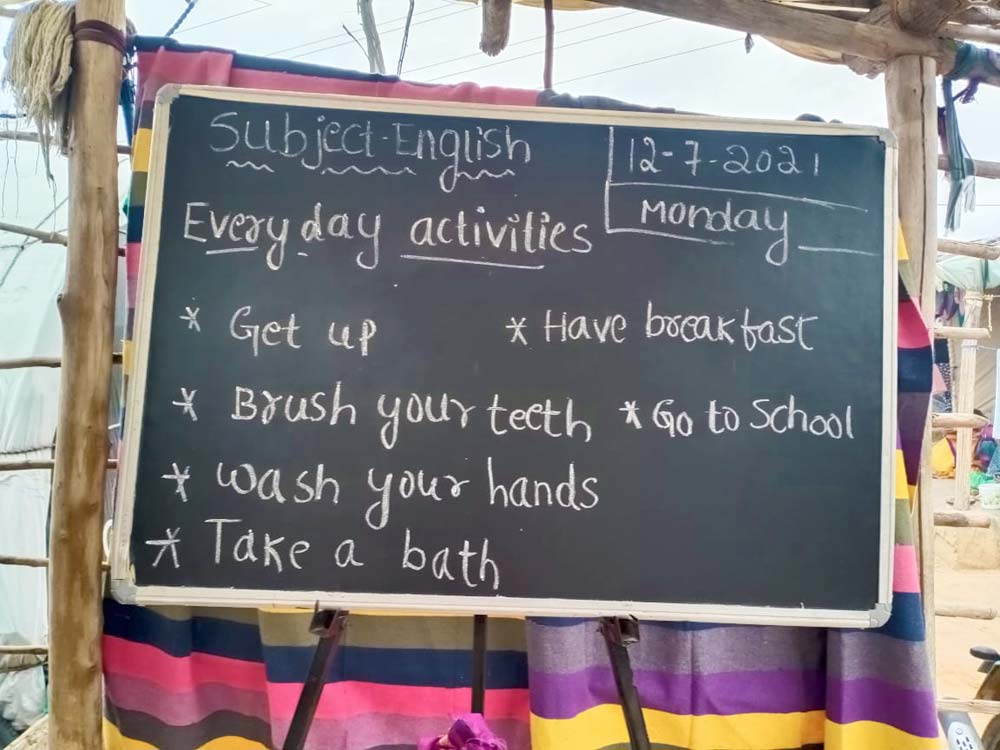 Subject-English
12-7-2021
Monday
Every day activities
* Get up
* Have breakfast
* Brush your teeth
* Go to School
* Wash your hands
* Take a bath